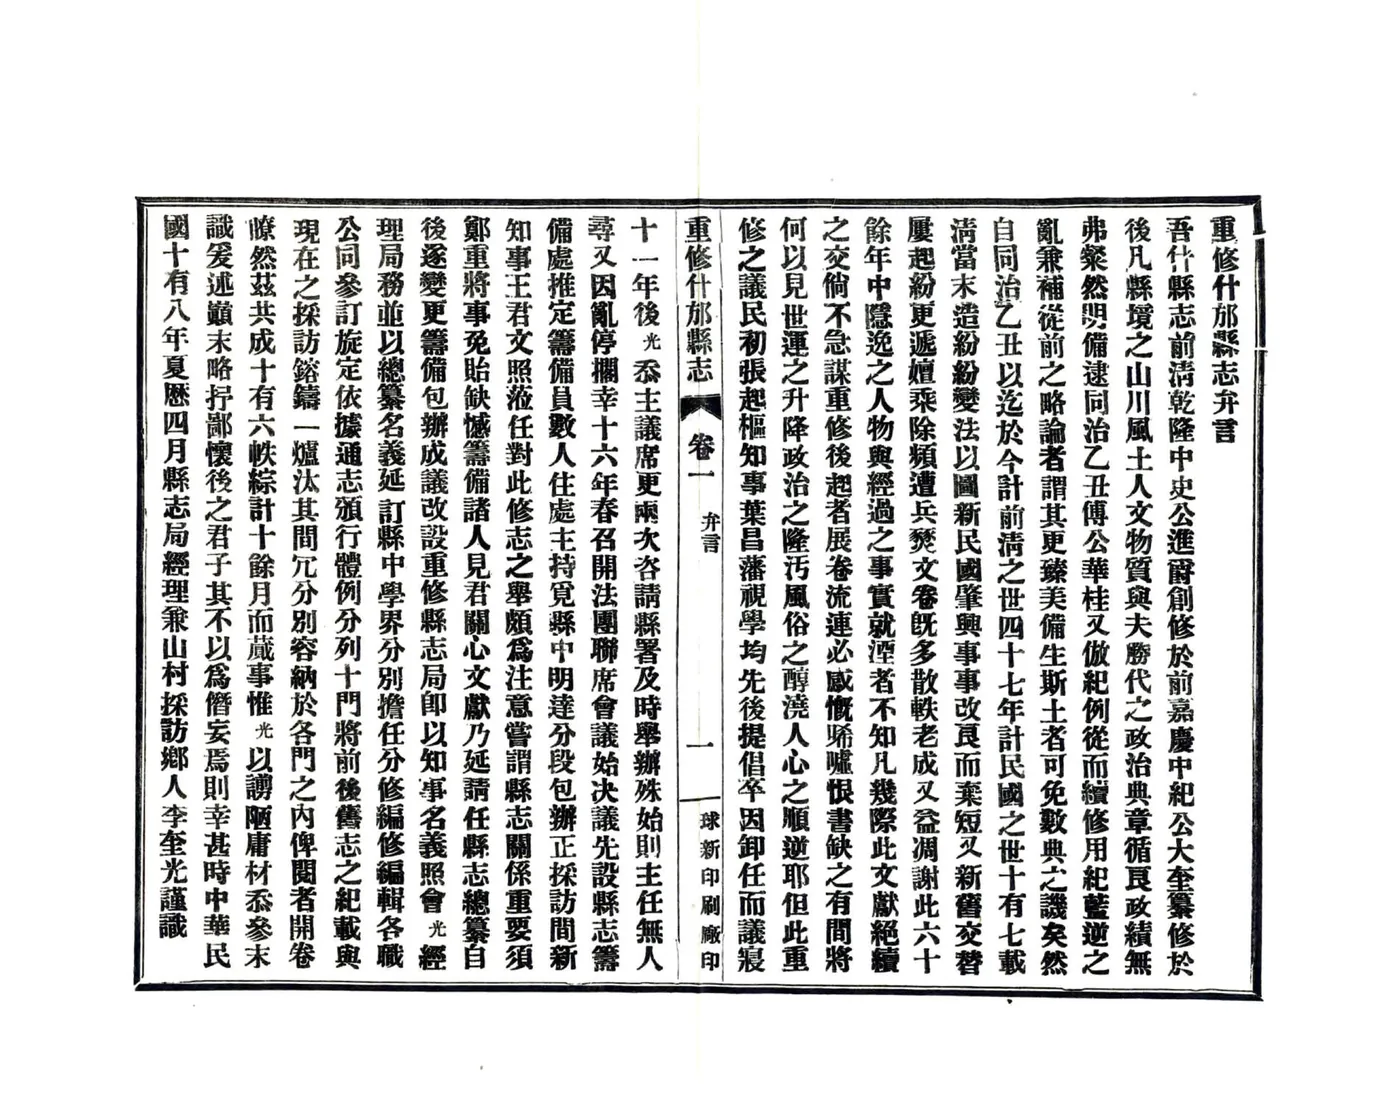 重修什邡縣志弁言
吾什縣志前清乾隆中史公進爵創修於前嘉慶中紀公大奎纂修於
後凡縣境之山川風土人文物質與夫勝代之政治典章循良政績無
弗粲然明備逮同治乙丑傅公華桂又倣紀例從而續修用紀藍逆之
亂兼補從前之略論者謂其更臻美備生斯土者可免數典之譏矣然
自同治乙丑以迄於今計前清之世四十七年計民國之世十有七載
清當末造紛紛變法以圖新民國肇興事事改良而棄短又新舊交替
屢起紛更遞嬗乘除頻遭兵燹文卷旣多散軼老成又益凋謝此六十
餘年中隱逸之人物與經過之事實就湮者不知凡幾際此文獻絕續
之交倘不急謀重修後起者展卷流連必感慨唏噓恨書缺之有間將
何以見世運之升降政治之隆汚風俗之醇澆人心之順逆耶但此重
修之議民初張起樞知事葉昌藩視學均先後提倡卒因卸任而議寢
重修什邡縣志
卷一
弁言
一
球新印刷廠印
十一年後光忝主議席更兩次咨請縣署及時舉辦殊始則主任無人
尋又因亂停擱幸十六年春召開法團聯席會議始決議先設縣志籌
備處推定籌備員數人住處主持覓縣中明達分段包辦正採訪間新
知事王君文照蒞任對此修志之舉頗爲注意嘗謂縣志關係重要須
鄭重將事免貽缺憾籌備諸人見君關心文獻乃延請任縣志總纂自
後遂變更籌備包辦成議改設重修縣志局卽以知事名義照會光經
理局務並以總纂名義延訂縣中學界分別擔任分修編修編輯各職
公同參訂旋定依據通志頒行體例分列十門將前後舊志之紀載與
現在之採訪鎔鑄一爐汰其間冗分別容納於各門之內俾閱者開卷
瞭然茲共成十有六帙綜計十餘月而蕆事惟光以謭陋庸材忝參末
議爰述巔末略抒鄙懷後之君子其不以爲僭妄焉則幸甚時中華民
國十有八年夏歷四月縣志局經理兼山村採訪鄉人李奎光謹識